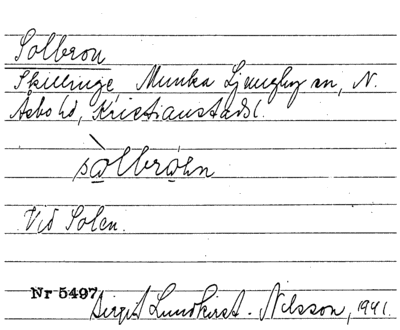 Solbron
Skillinge Munka Ljungby sn, N.
Åsbo hd, Kristianstads l.
sòlbrøən
Vid Solen.
Nr 5497
Birgit Lundkvist-Nilsson, 1941.